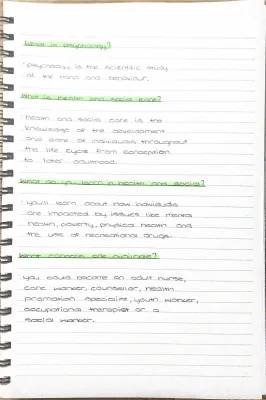 What is psychology?
· psychology is the scientific study
of the mind and behaviour.
What is health and social care?
· health and social care is the
knowledge of the development
and care of individuals throughout
the life cycle from conception
to later adulthood.
What do you learn in health and social?
· you'll learn about how individuals
are impacted by issues like mental
health, poverty, physical health and
the use of recreational drugs.
What careers are available?
you could become an adult nurse,
care worker, counsellor, health
promotion specialist, youth worker,
occupational therapist or a
social worker.